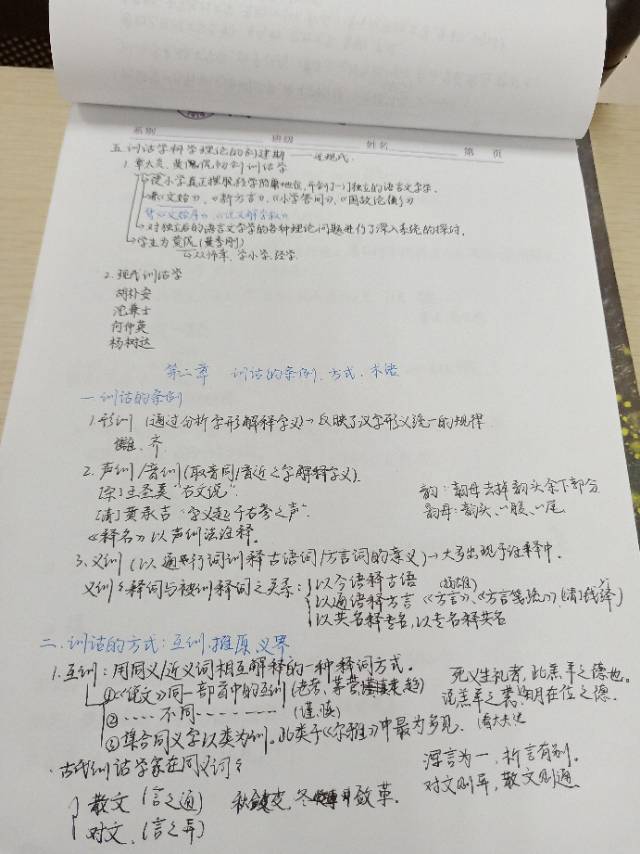 系别 班级 姓名 第 页
五 训诂学科学理论的创建期——近现代.
1. 章太炎、黄侃 创训诂学
使小学真正摆脱经学的附地位,开创了一门独立的语言文字学.
《文始》、《新方言》、《小学答问》、《国故论衡》
对独立后的语言文字学的各种理论问题进行了深入系统的探讨.
学生为黄侃(黄季刚)
师承 学小学、经学.
2. 现代训诂学
胡朴安
沈兼士
何仲英
杨树达
第二章 训诂的条例、方式、术语
一 训诂的条例
1. 形训 (通过分析字形解释字义)→反映了汉字形义统一的规律
齐
2. 声训/音训(取音同/音近之字解释字义).
[宋]王圣美"右文说".
[清]黄承吉"字义起于右旁之声".
《释名》以声训法注释.
韵:韵母去掉韵头余下部分
韵母:韵头、韵腹、韵尾
3. 义训(以通行词训释古语词/方言词的意义)→大多出现于注释中.
义训:释词与被训释词之关系:
以今语释古语 (扬雄)
以通语释方言 《方言》、《方言笺疏》、(清)钱绎
以共名释专名,以专名释共名
二、训诂的方式:互训、推原、义界
1. 互训:用同义/近义词相互解释的一种释词方式.
①《说文》同一部首中的互训(老考、茅菅 走趋)
②……不同……(谨、慎)
③集合同义字以类为训。此类于《尔雅》中最为多见.
死义生礼者,此羔羊之德也。
在位之德.
古代训诂学家在同义词
浑言为一,析言有别.
对文则异,散文则通
散文(言之通) 秋 变,冬 改革.
对文(言之异)